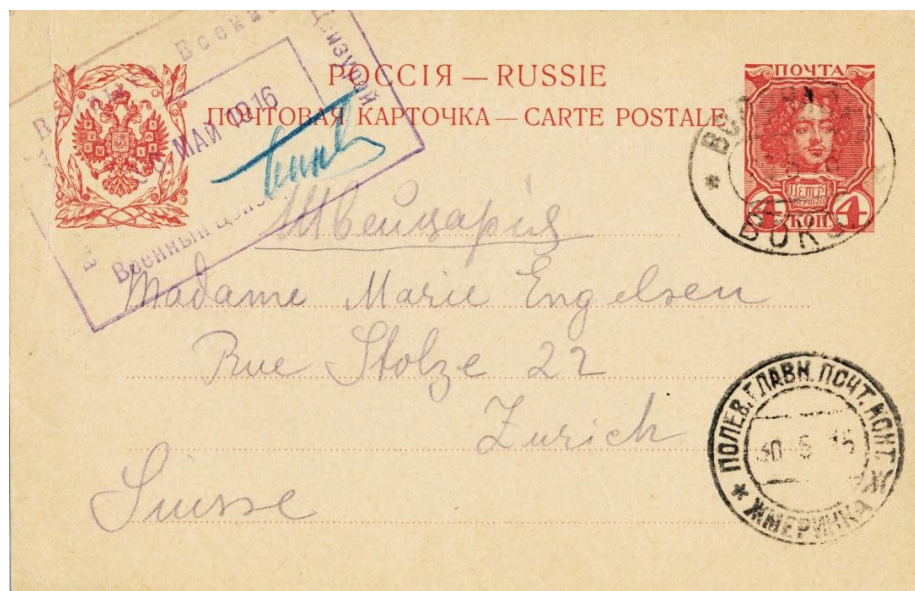 РОССІЯ — RUSSIE
ПОЧТОВАЯ КАРТОЧКА — CARTE POSTALE
ПОЧТА
4 КОП 4
МАЙ 1916
Военный
Швейцарія
Madame Marie Engelsen
Rue Stolze 22
Zurich
Suisse
ПОЛЕВ. ГЛАВН. ПОЧТ. КОНТ. Ж
30 5 16
ЖМЕРИНКА